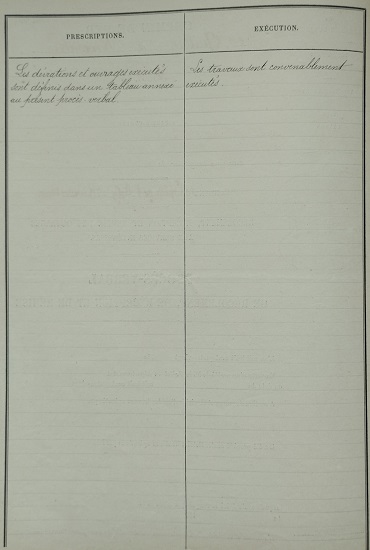 PRESCRIPTIONS.
EXÉCUTION.
Les dérations et ouvrages exécutés
sont définis dans un tableau annexé
au présent procès-verbal.
Les travaux sont convenablement
exécutés.